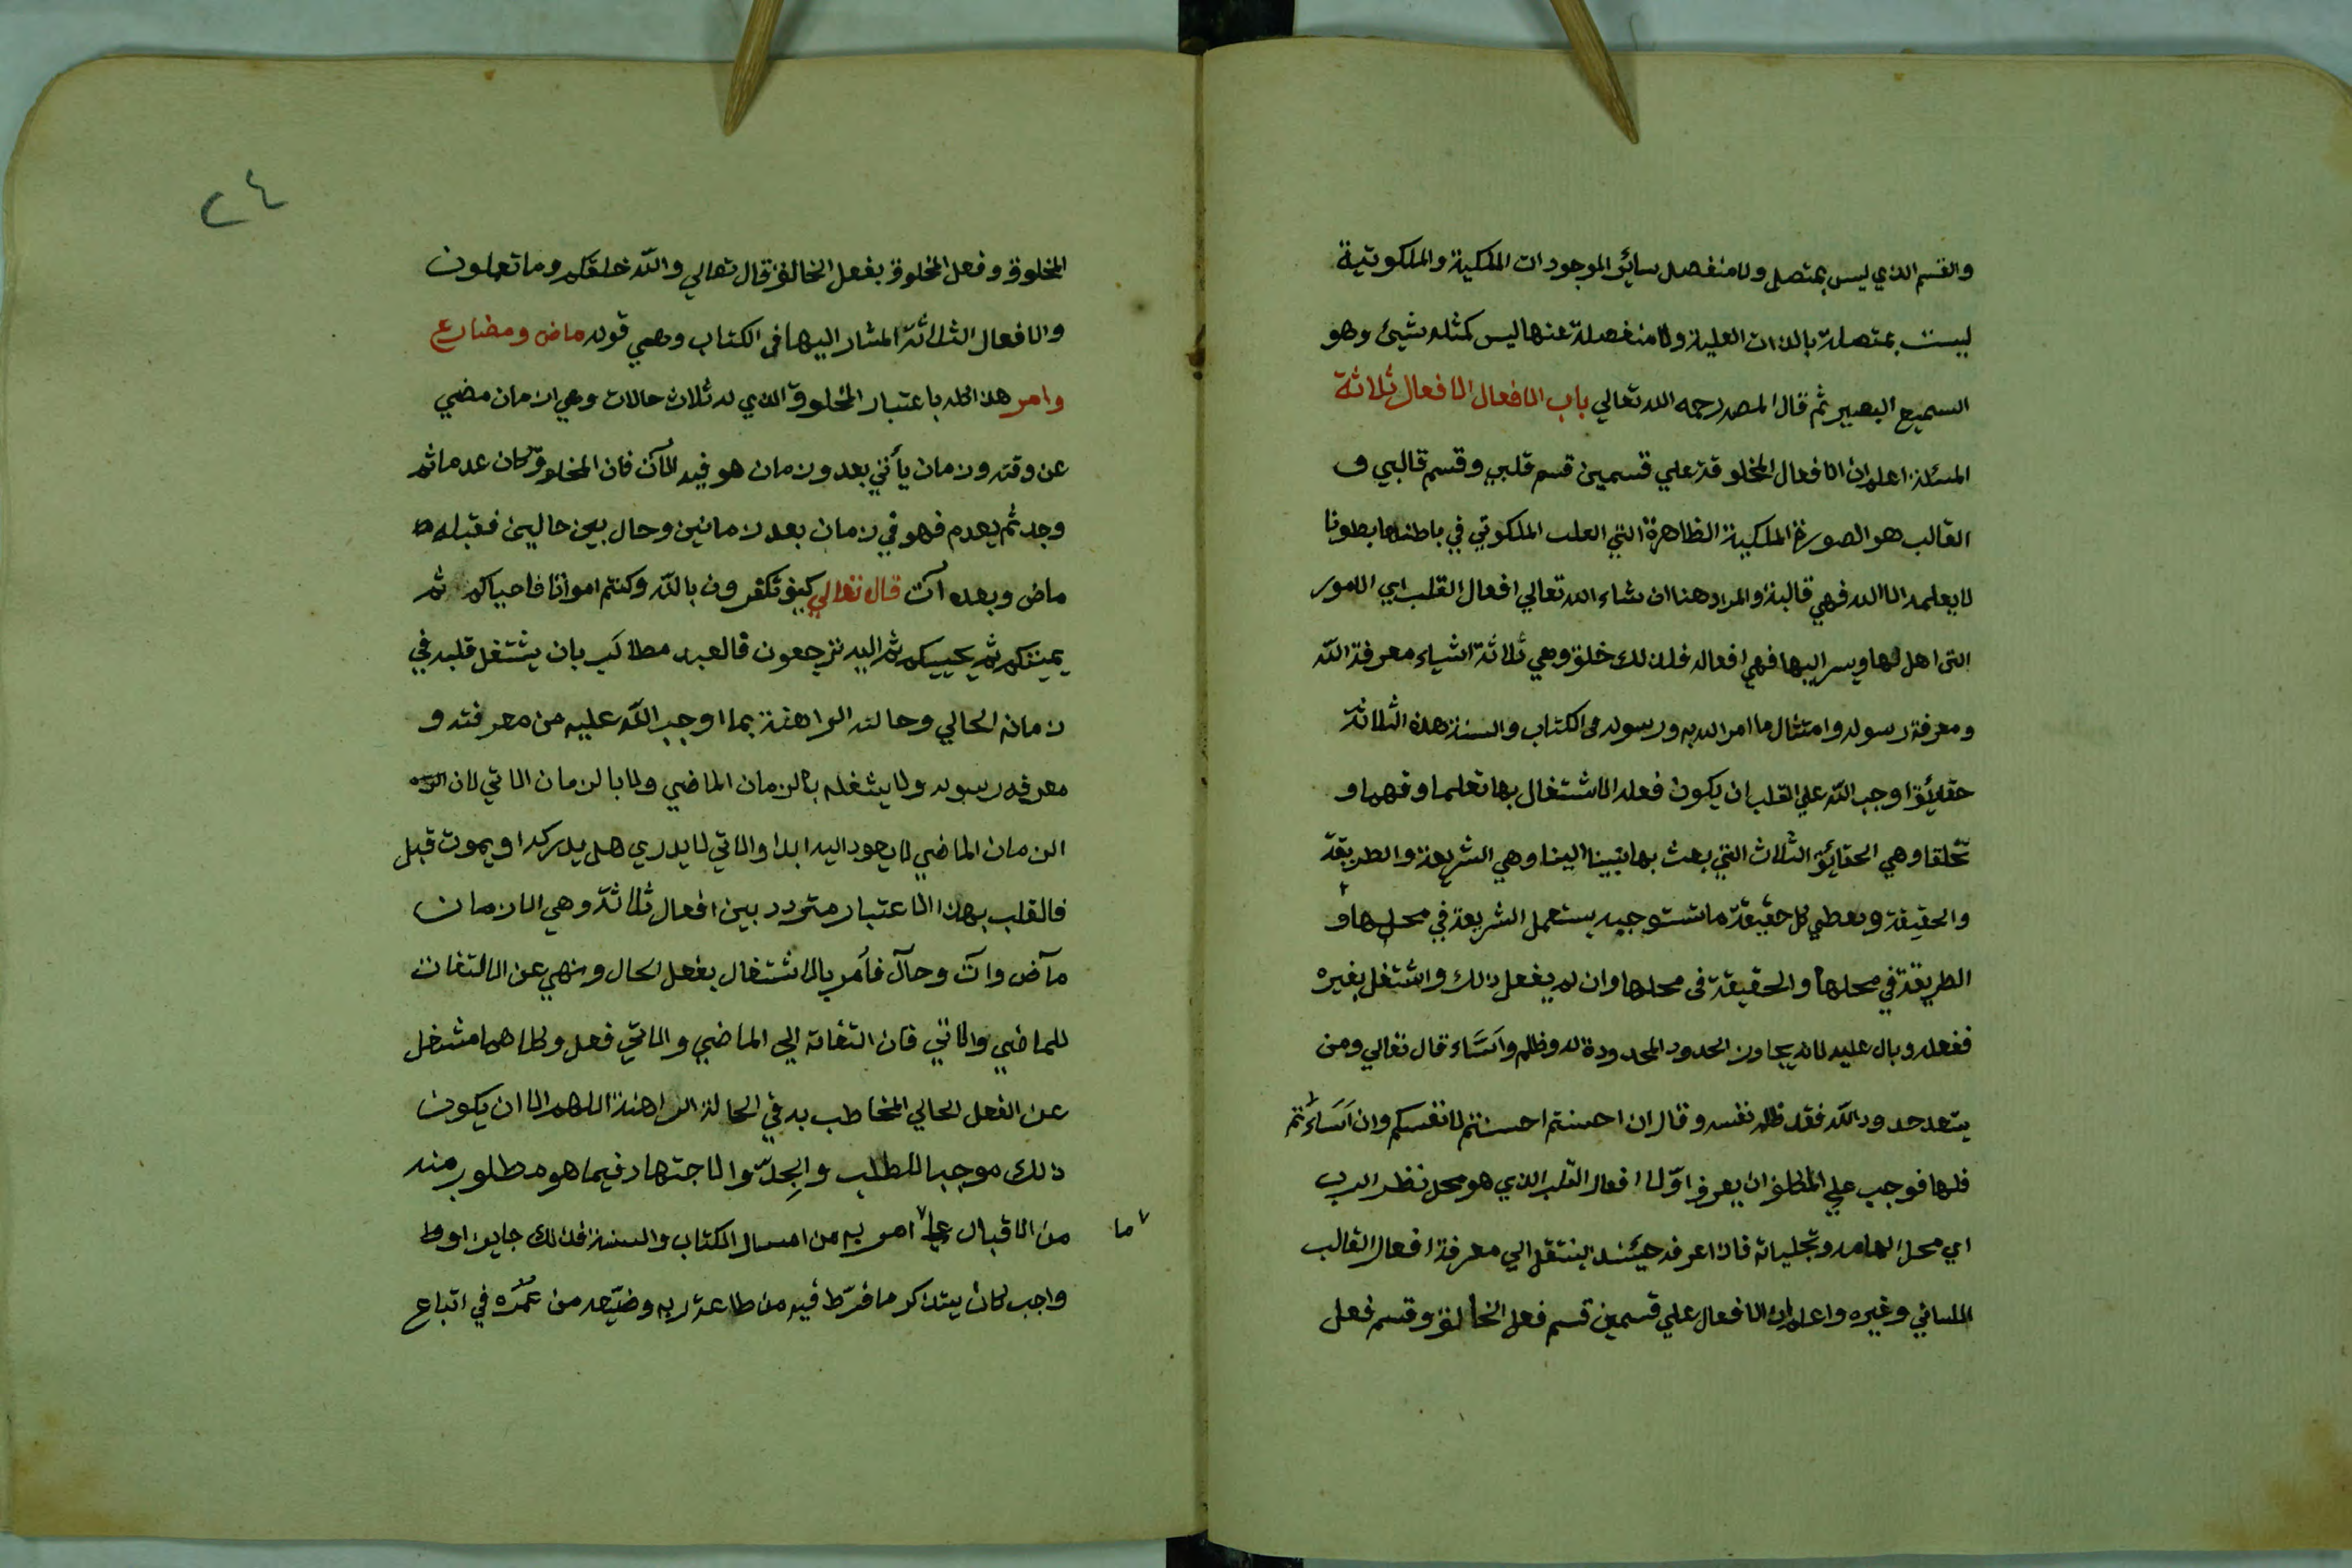 والقسم الذي ليس بمتصل ولا منفصل سائر الموجودات الملكية والملكوتية
ليست بمتصلة بالذات العلية ولا منفصلة عنها ليس كمثله شيئ وهو
السميع البصير ثم قال المصـ رحمه الله تعالي باب الافعال الافعال ثلاثة
المسئلة اعلم ان الافعال المخلوقة علي قسمين قسم قلبي وقسم قالبي و
القالب هو الصورة الملكية الظاهرة التي القلب الملكوتي في باطنها بطونا
لا يعلمه الا الله فهي قالبة والمراد هنا ان شاء الله تعالي افعال القلب اي الامور
التي اهل لها ويسر اليها فهي افعاله فلذلك خلق وهي ثلاثة اشياء معرفة الله
ومعرفة رسوله وامتثال ما امر الله به ورسوله في الكتاب والسنة هذه الثلاثة
حقائق اوجب الله علي القلب ان يكون فعله الاشتغال بها تعلما وفهما و
تخلقا وهي الحقائق الثلاث التي بعث بها نبينا الينا وهي الشريعة والطريقة
والحقيقة ويعطي كل حقيقة ما تستوجبه يستعمل الشريعة في محلها و
الطريقة في محلها والحقيقة في محلها وان لم يفعل ذلك واشتغل بغيره
ففعله وبال عليه لانه يجاوز الحدود المحدودة له وظلم واساء قال تعالي ومن
يتعد حدود الله فقد ظلم نفسه وقال ان احسنتم احسنتم لانفسكم وان اساءتم
فلها فوجب علي المكلف ان يعرف اولا افعال القلب الذي هو محل نظر الرب
اي محل الهامه وتجلياته فاذا عرفه حينئذ ينتقل الي معرفة افعال القالب
اللساني وغيره واعلم ان الافعال علي قسمين قسم فعل الخالق وقسم فعل
٢٤
المخلوق وفعل المخلوق بفعل الخالق قال تعالي والله خلقكم وما تعملون
والافعال الثلاثة المشار اليها في الكتاب وهي قوله ماض ومضارع
وامر هذا كله باعتبار المخلوق الذي له ثلاث حالات وهي زمان مضي
عن وقته وزمان يأتي بعد وزمان هو فيه الآن فان المخلوق كان عدما ثم
وجد ثم يعدم فهو في زمان بعد زمانين وحال بين حالين فقبله
ماض وبعده آت قال تعالي كيف تكفرون بالله وكنتم امواتا فاحياكم ثم
يميتكم ثم يحييكم ثم اليه ترجعون فالعبد مطالب بان يشتغل قلبه في
زمانه الحالي وحالته الراهنة بما اوجب الله عليه من معرفته و
معرفة رسوله ولا يشغله بالزمان الماضي ولا بالزمان الاتي لان
الزمان الماضي لا يعود اليه ابدا والاتي لا يدري هل يدركه او يموت قبل
فالقلب بهذا الاعتبار متردد بين افعال ثلاثة وهي الازمان
مآض وآت وحآل فأمر بالاشتغال بفعل الحال ونهي عن الالتفات
للماضي والاتي فان التفاته الي الماضي والاتي فعل وكلاهما مشغل
عن الفعل الحالي المخاطب به في الحالة الراهنة اللهم الا ان يكون
ذلك موجبا للطلب والجد والاجتهاد فيما هو مطلوب منه
من الاقبال علي ٧ امر به من امتثال الكتاب والسنة فذلك جايز او
٧ ما
واجب كان يتذكر ما فرط فيه من طاعة ربه وضيعه من عمره في اتباع